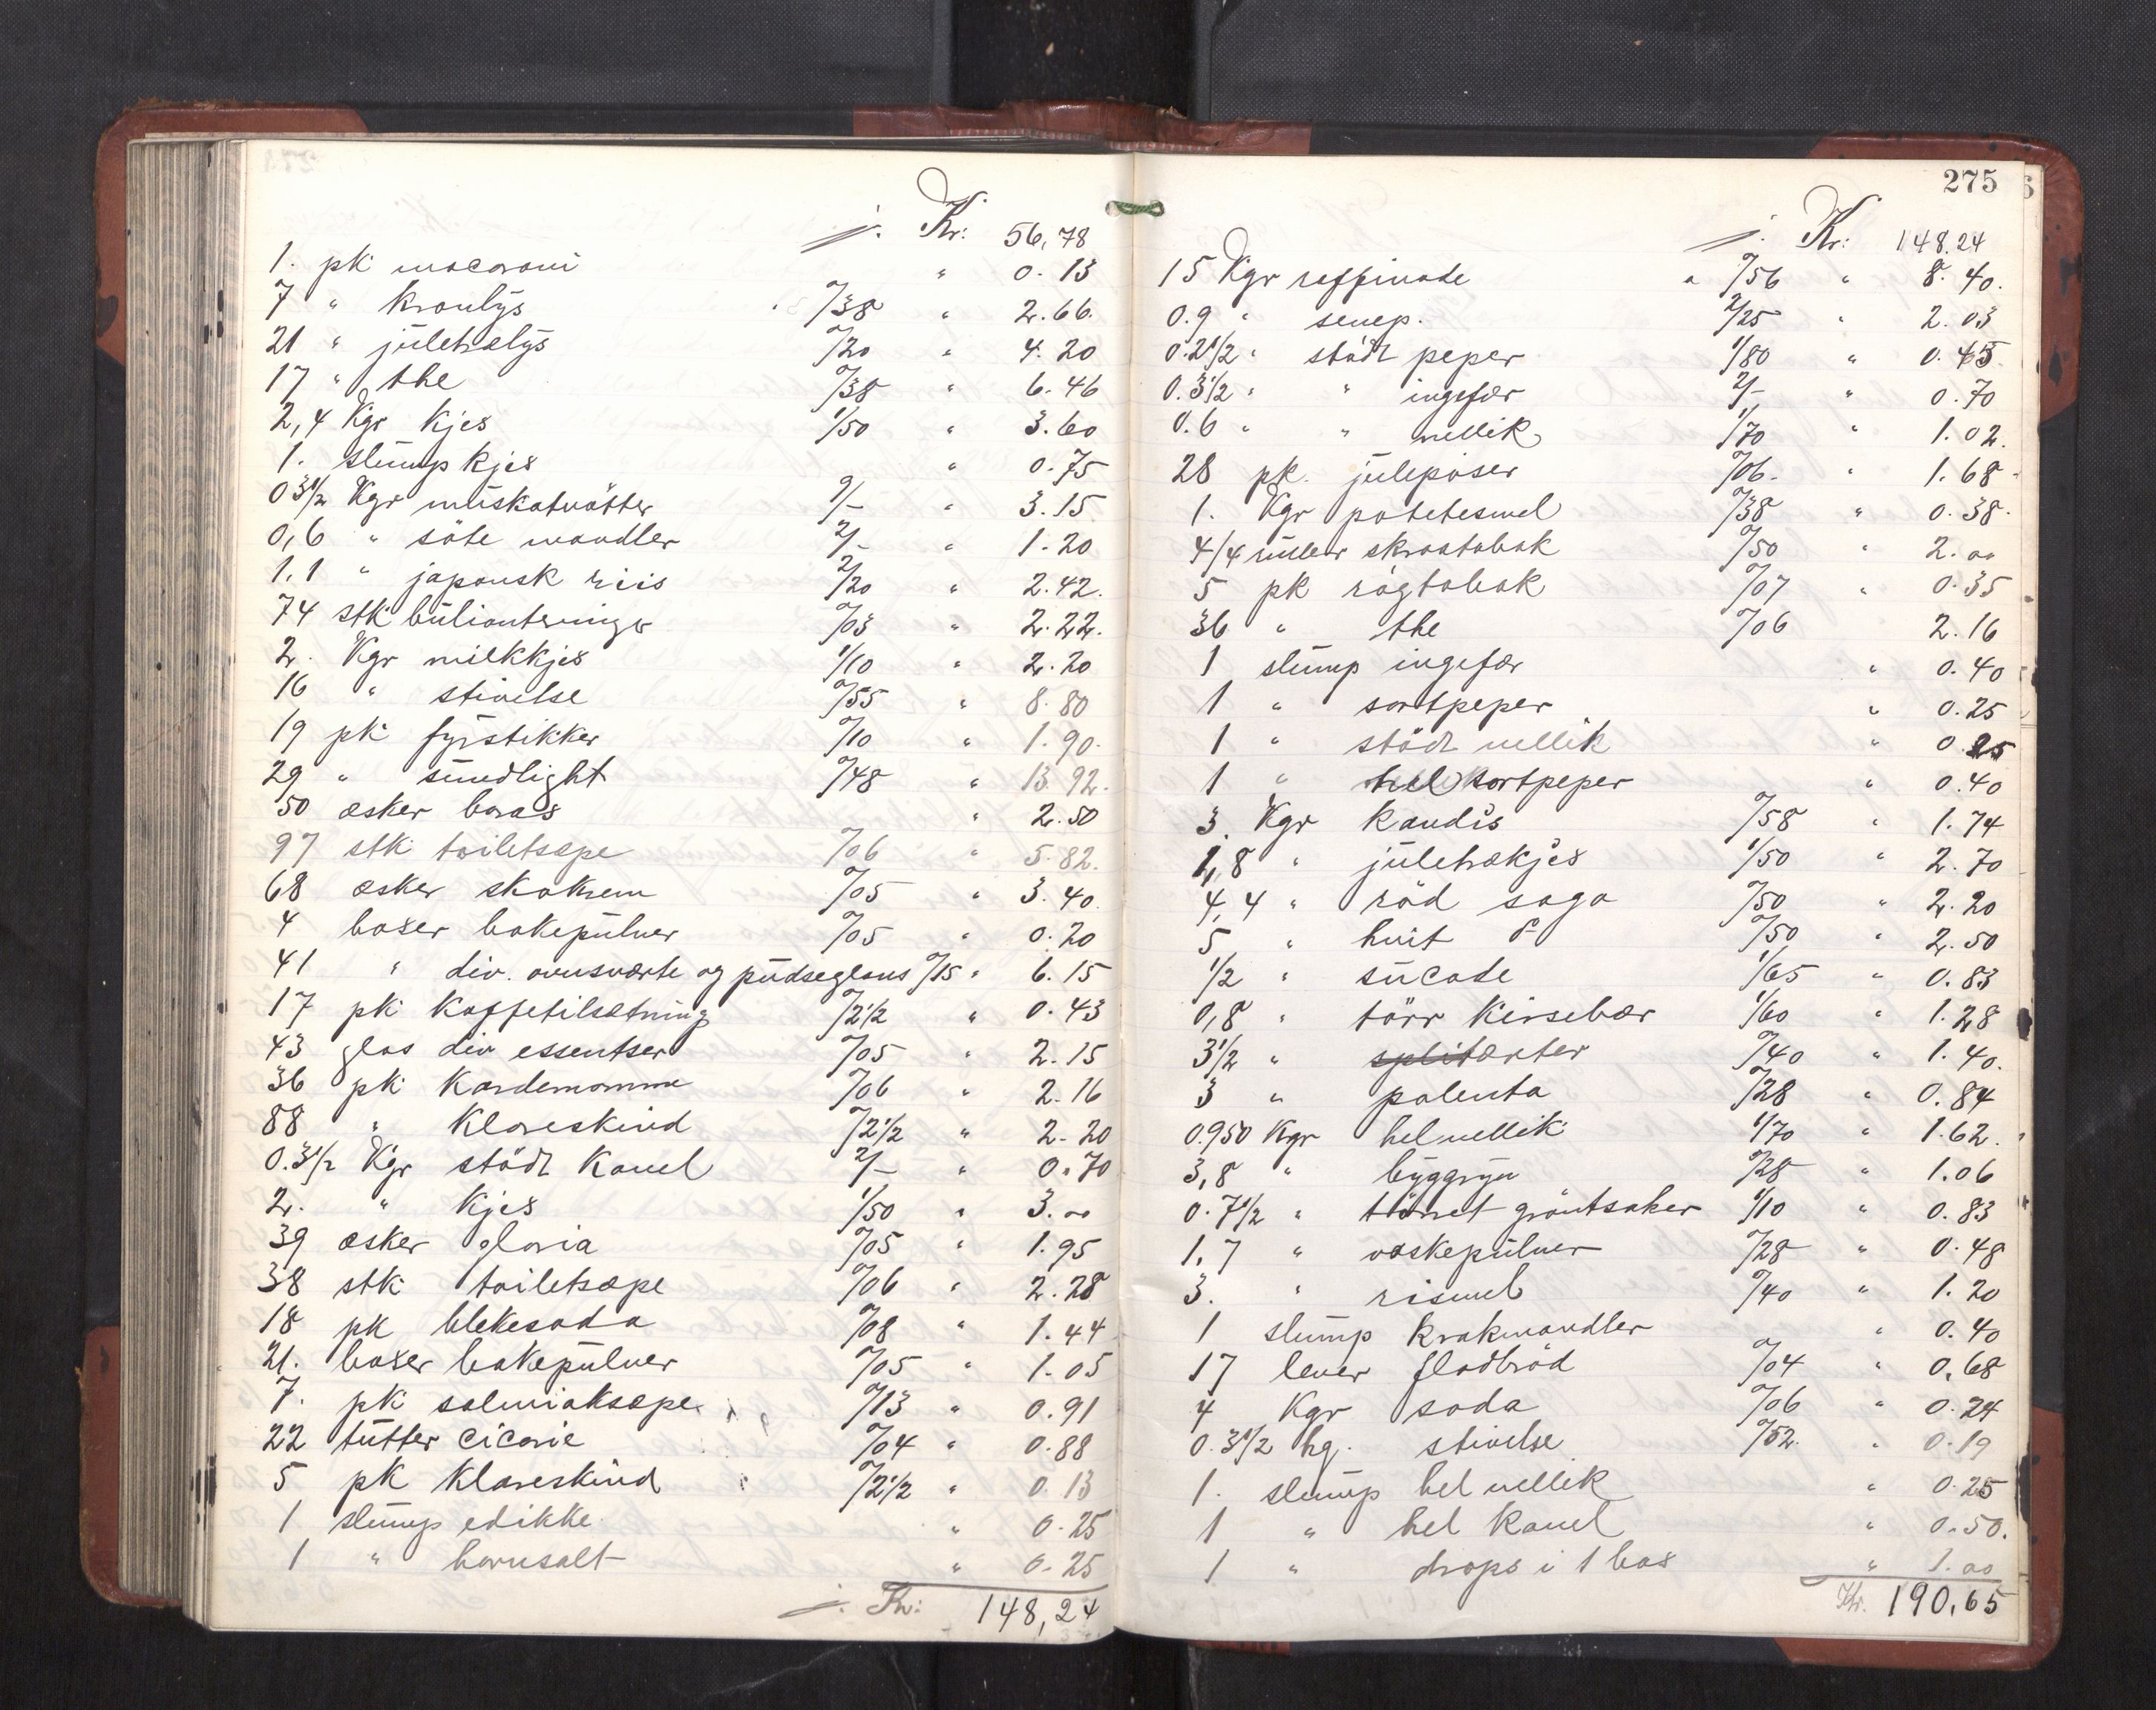 j. Kr: 56,78
1. pk macaroni " 0.13
7 " kronlys %38 " 2.66.
21 " juletrelys %20 " 4.20
17 " the %38 " 6.46
2,4 Kgr kjes 1/50 " 3.60
1. slump kjes " 0.75
0 3½ Kgr muskatnötter 9/- " 3.15
0,6 " söte mandler 2/- " 1.20
1.1 " japansk riis 2/20 " 2.42.
74 stk bulionterninger %03 " 2.22.
2. Kgr milkkjes 1/10 " 2.20
16 " stivelse %55 " 8.80
19 pk fyrstikker %10 " 1.90.
29 " sundlight %48 " 13.92.
50 æsker boras " 2.50
97 stk toiletsæpe %06 " 5.82.
68 æsker skokrem %05 " 3.40.
4 boxer bakepulver %05 " 0.20
41 " div. ovnsværte og pudseglans %15 " 6.15
17 pk kaffetilsætning %2½ " 0.43
43 glas div essentser %05 " 2.15
36 pk kardemomme %06 " 2.16
88 " klareskind %2½ " 2.20
0.3½ Kgr stödt kanel 2/- " 0.70
2. " kjes 1/50 " 3.00
39 æsker gloria %05 " 1.95
38 stk toiletsæpe %06 " 2.28
18 pk blekesoda %08 " 1.44
21. boxer bakepulver %05 " 1.05
7. pk salmiaksæpe %13 " 0.91
22 tutter cicorie %04 " 0.88
5 pk klareskind %2½ " 0.13
1 slump edikke " 0.25
1 " hornsalt " 0.25
j. Kr: 148,24
275
j. Kr: 148.24
15 Kgr raffinade a %56 " 8.40.
0.9 " senep. 2/25 " 2.03
0.2½ " stödt peper 1/80 " 0.45
0.3½ " " ingefær 2/- " 0.70
0.6 " " nellik 1/70 " 1.02.
28 pk. juleposer %06. " 1.68.
1. Kgr potetesmel %38 " 0.38.
4/4 ruller skraatobak %50 " 2.00
5 pk rögtobak %07 " 0.35
36 " the %06 2.16
1 slump ingefær " 0.40
1 " sortpeper " 0.25
1 " stödt nellik " 0.25
1 " hel sortpeper " 0.40
3. Kgr kandis %58 " 1.74
1,8 " juletrækjes 1/50 " 2.70
4,4 " röd sago %50 " 2.20
5 " hvit do %50 " 2.50
½ " sucade 1/65 " 0.83
0,8 " törr kirsebær 1/60 " 1.28
3½ " splitærter %40 " 1.40.
3 " polenta %28 " 0.84
0.950 Kgr hel nellik 1/70 " 1.62.
3,8 " byggryn %28 " 1.06
0.7½ " törret gröntsaker 1/10 " 0.83
1,7 " vaskepulver %28 " 0.48
3. " rismel %40 " 1.20
1 slump krakmandler " 0.40
17 lever fladbröd %04 " 0.68
4 Kgr soda %06 " 0.24
0.3½ hg. stivelse %52. " 0.19
1. slump hel nellik " 0.25
1 " hel kanel " 0.50.
1 " drops i 1 box " 1.00
Kr. 190,65